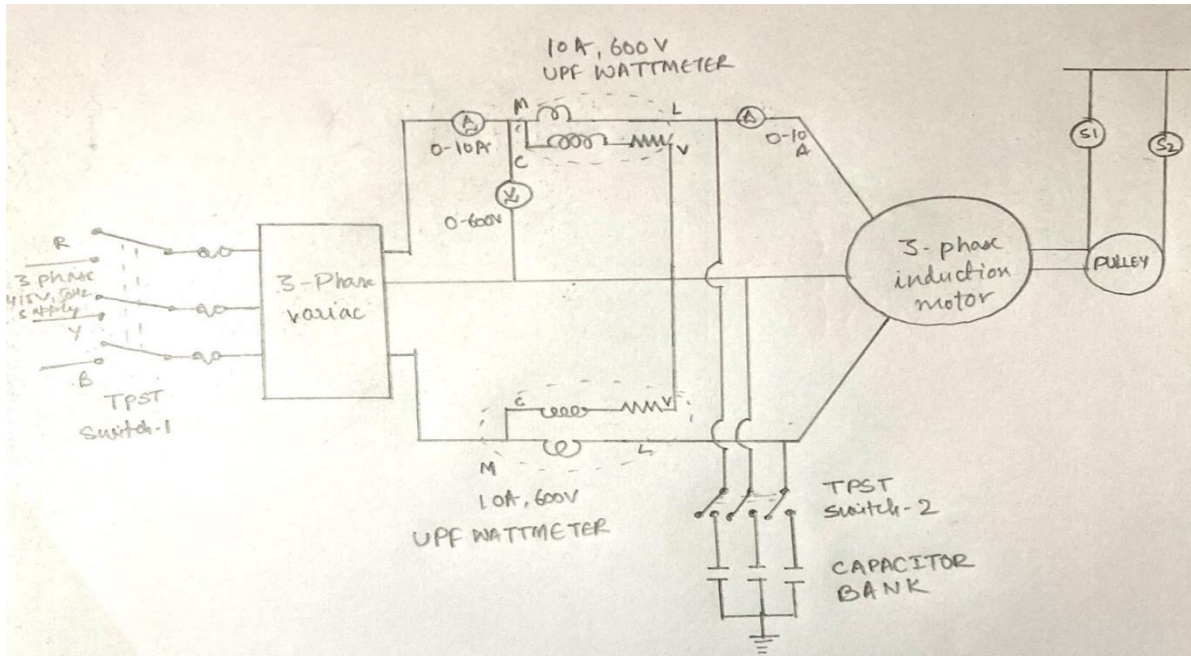 10A, 600V
UPF WATTMETER
M
L
A
0-10A
C
V
A
0-10
A
S1
S2
V
0-600V
R
3 phase
415V, 50Hz
supply
Y
B
TPST
Switch-1
3-Phase
variac
3-phase
induction
motor
PULLEY
C
V
M
L
10A, 600V
UPF WATTMETER
TPST
Switch-2
CAPACITOR
BANK